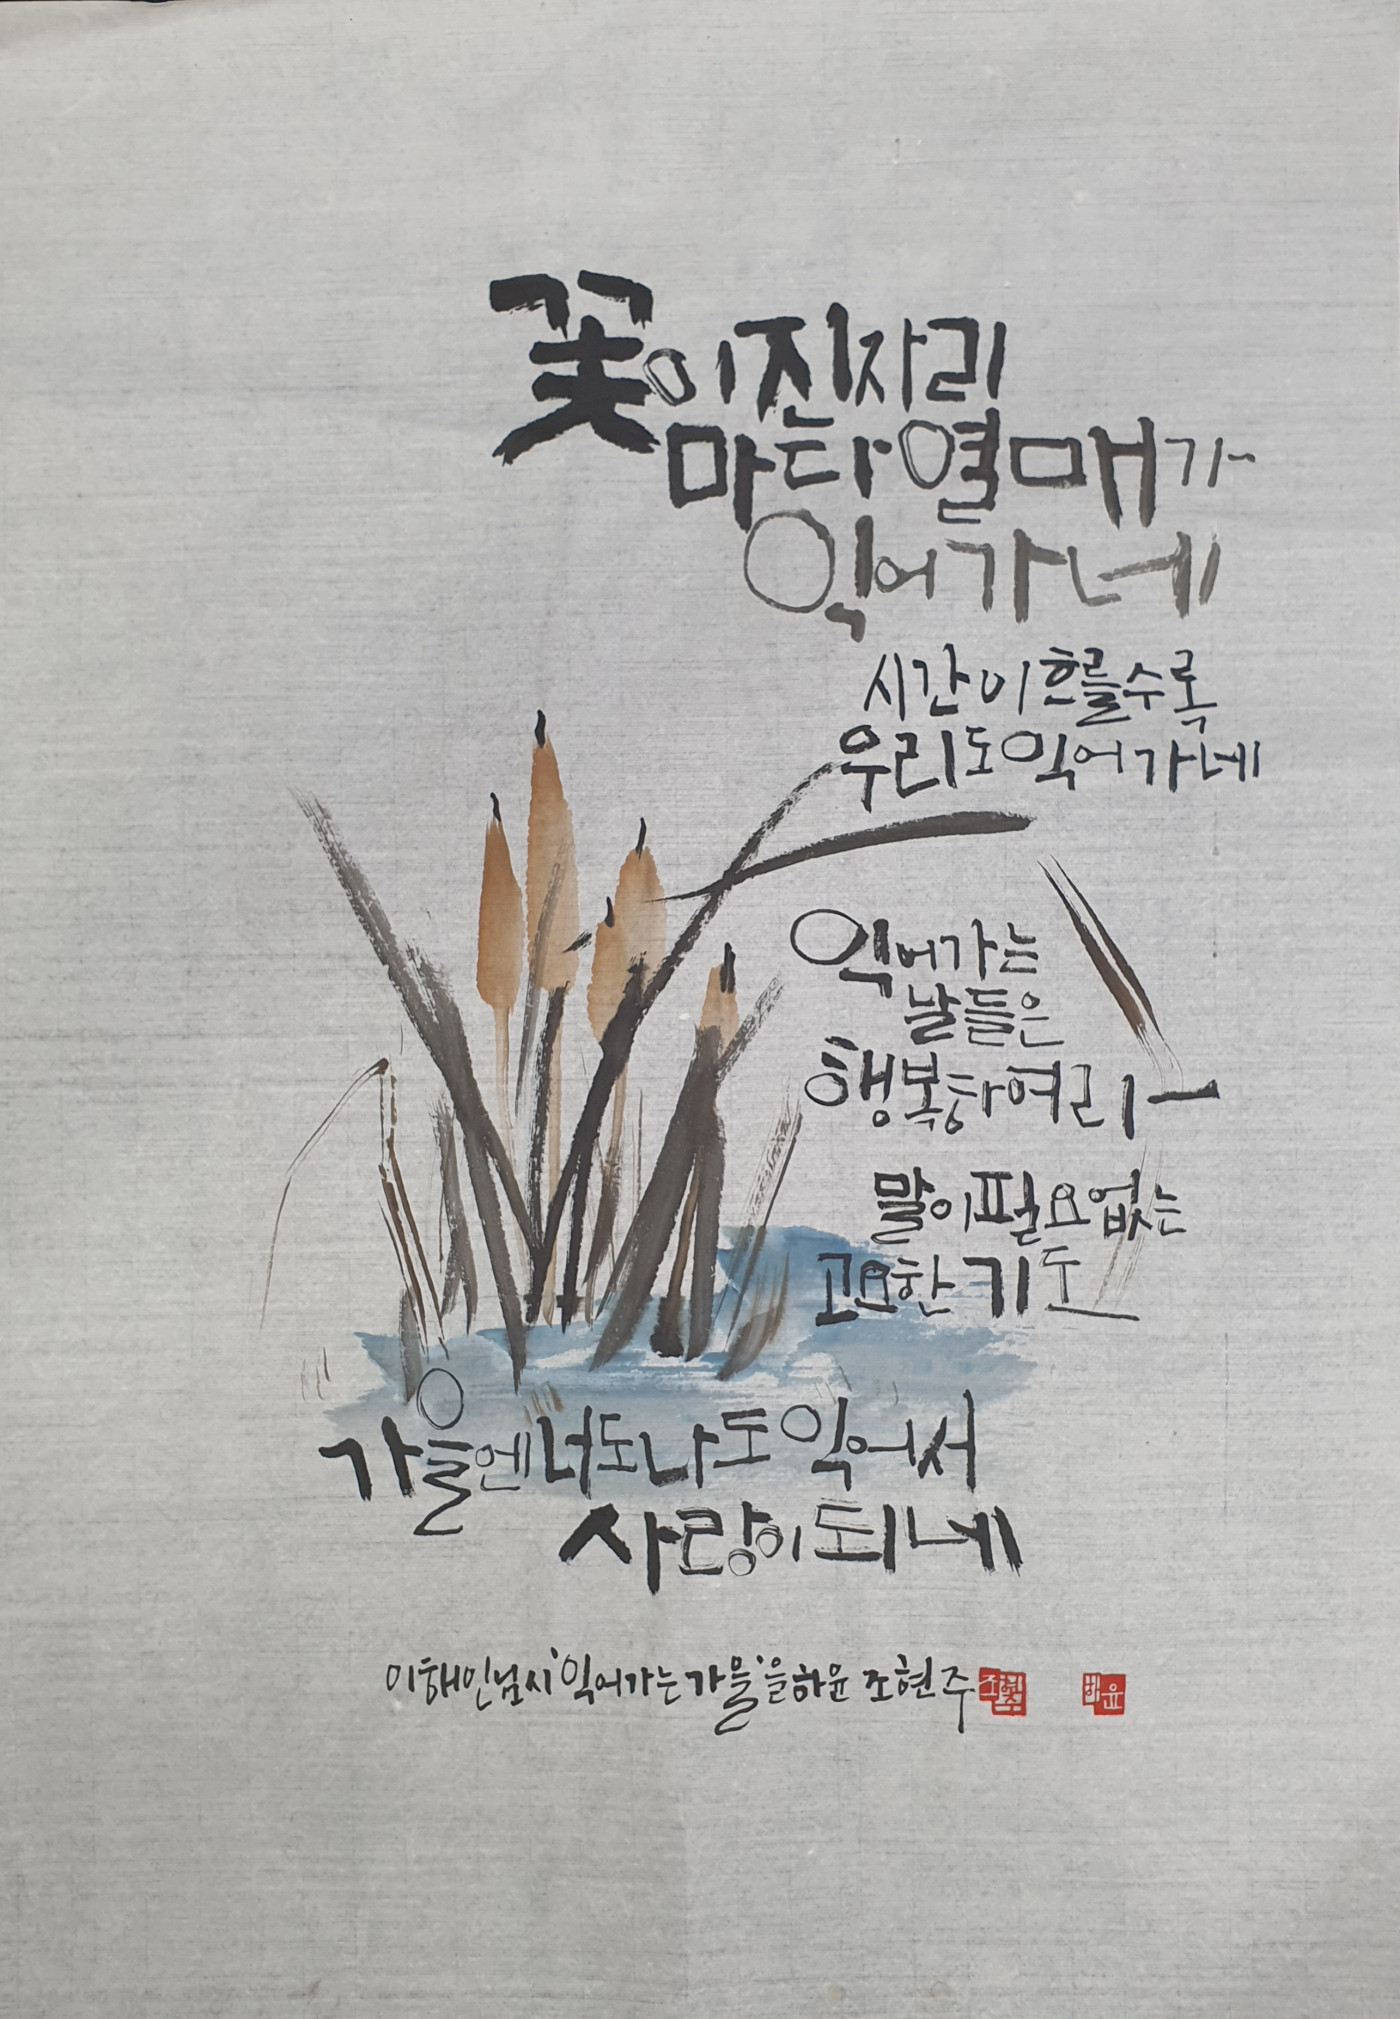 꽃이진자리
마다열매가
익어가네
시간이흐를수록
우리도익어가네
익어가는
날들은
행복하여라
말이필요없는
고요한기도
가을엔너도나도익어서
사랑이되네
이해인님시'익어가는가을'을하윤 조현주
조현주
하윤